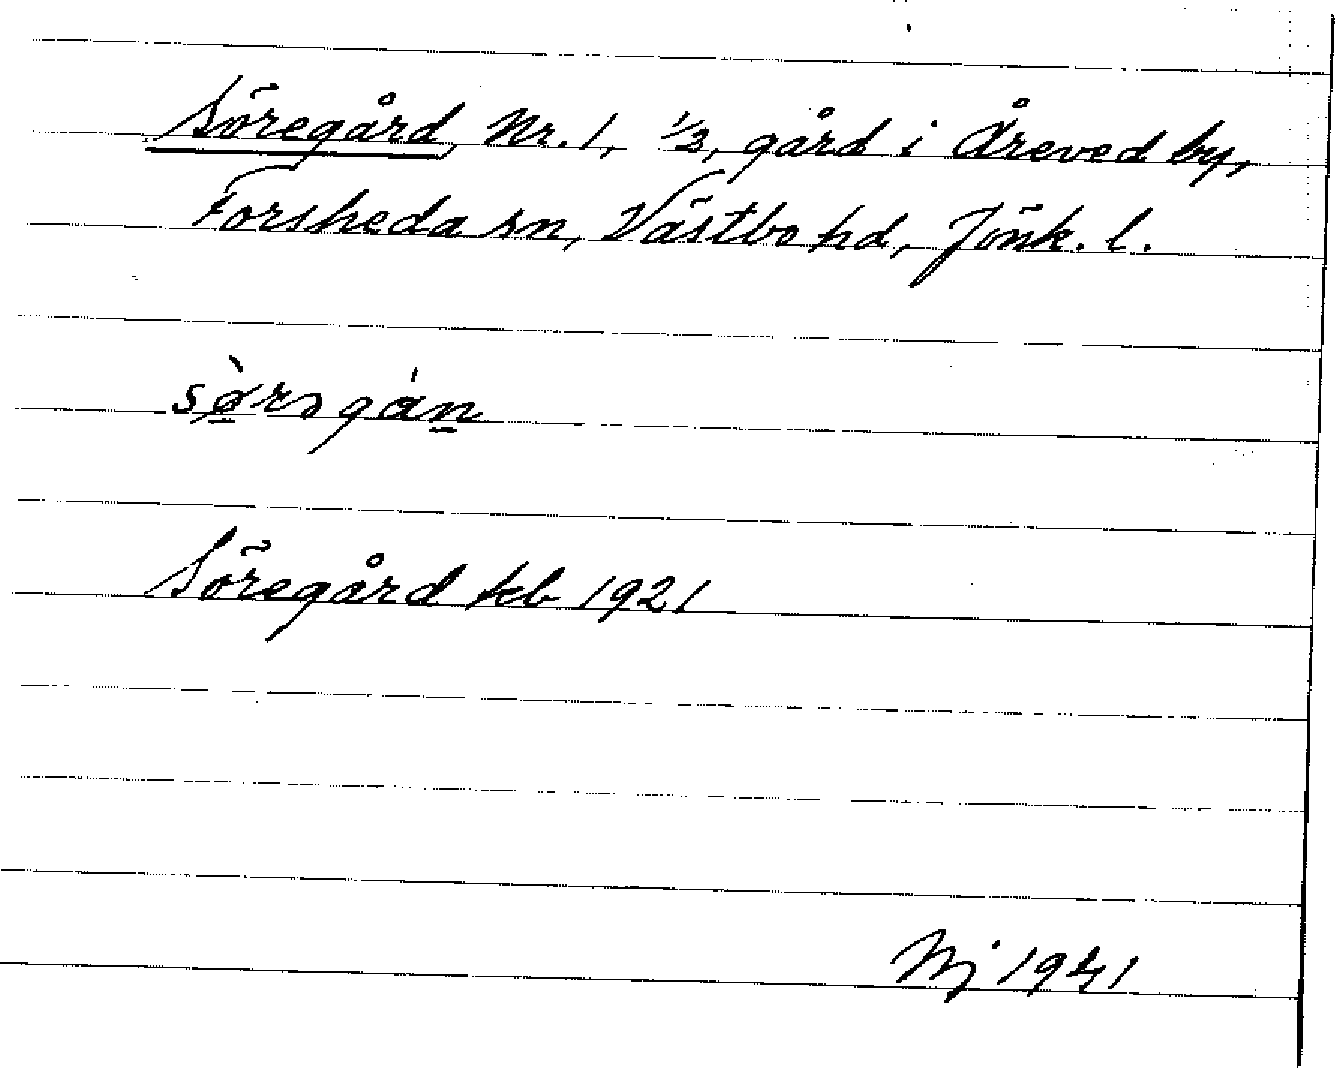 Söregård, Nr. 1, 1/3, gård i Åreved by,
Forsheda sn, Västbo hd, Jönk. l.
Söregård kb 1921
Nj 1941